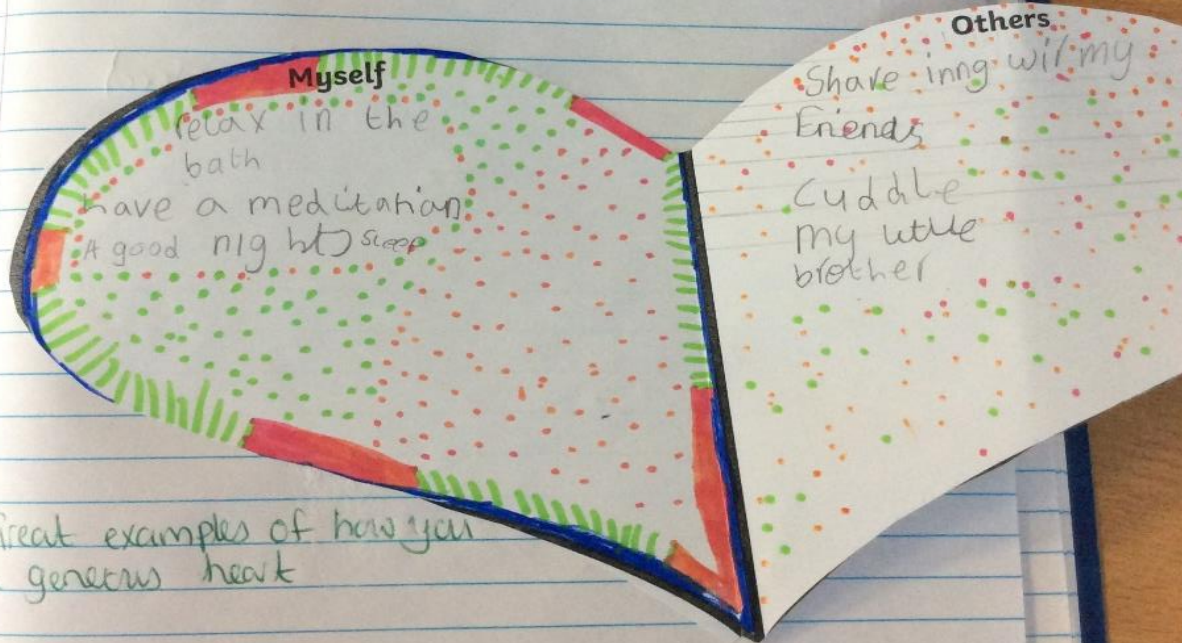 Myself
relax in the
bath
have a meditation
A good night sleep
Others
Share inng wir my
Friends
Cuddle
my little
brother
reat examples of how you
generus heart